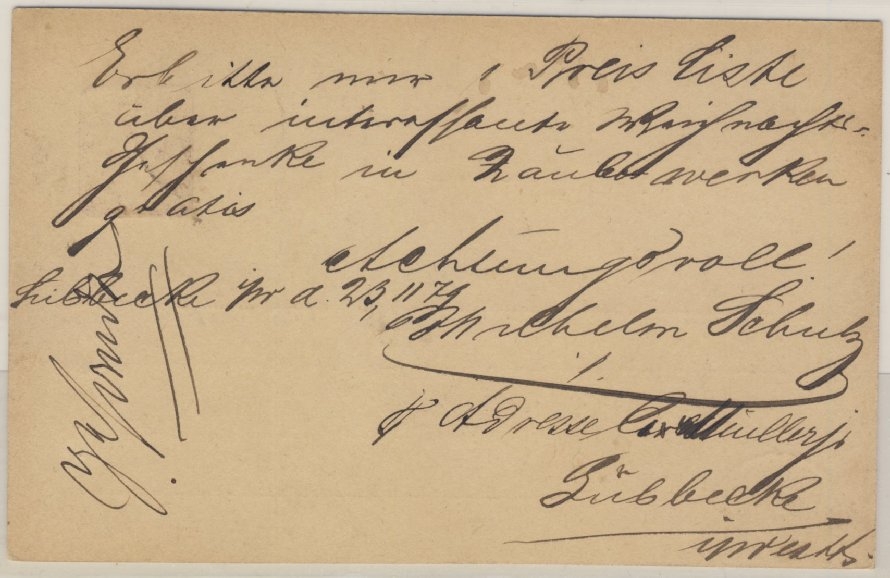 Erbitte mir 1 Preis Liste
über interessante Weihnachts-
Geschenke in Zauberwerken
gratis
Achtungsvoll!
Lübbecke d. 23/11 79
Wilhelm Schulz
Adresse Müller jr
Lübbecke